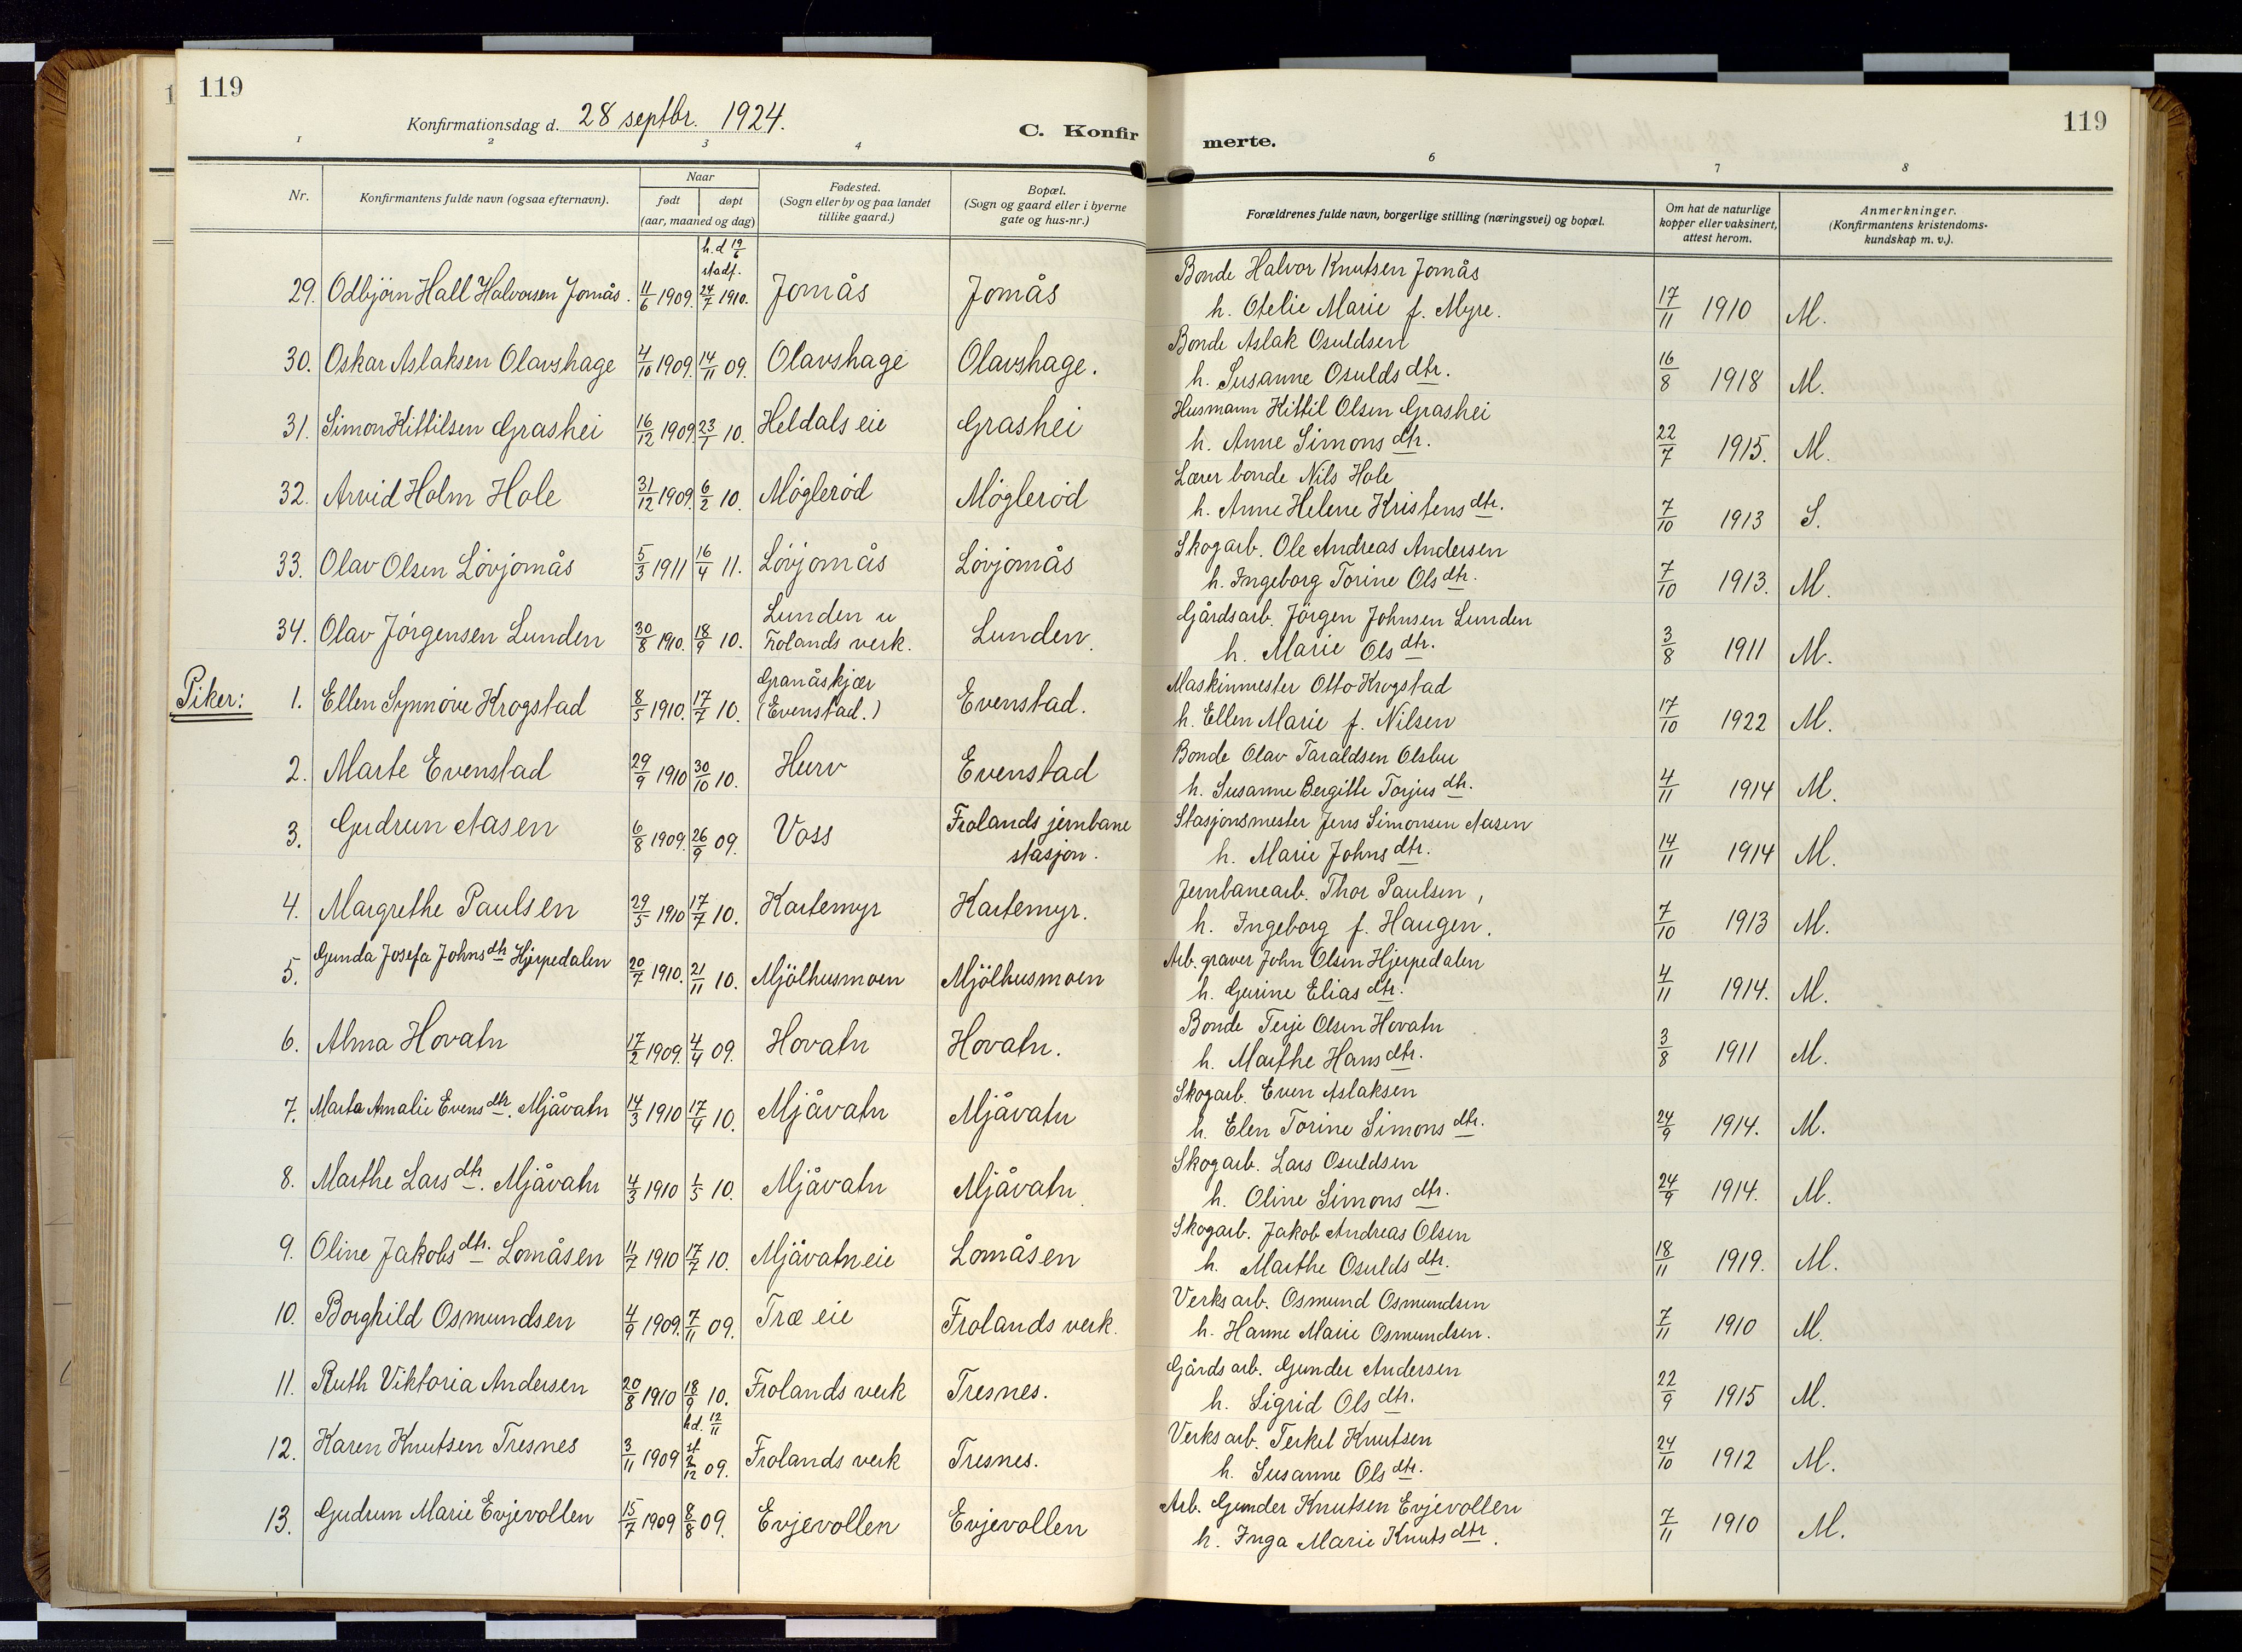 119
119
Konfirmationsdag d. 28 septbr. 1924.
C. Konfirmerte.
1 2 3 4 6 7 8
Nr. Konfirmantens fulde navn (ogsaa efternavn). Naar født døpt (aar, maaned og dag) Fødested. (Sogn eller by og paa landet tillike gaard.) Bopæl. (Sogn og gaard eller i byerne gate og hus-nr.) Forældrenes fulde navn, borgerlige stilling (næringsvei) og bopæl. Om hat de naturlige kopper eller vaksinert, attest herom. Anmerkninger. (Konfirmantens kristendoms-kundskap m. v.).
h. d 19/6
stadf.
Bonde Halvor Knutsen Jomås
29. Odbjörn Hall Halvorsen Jomås. 11/6 1909. 24/7 1910. Jomås Jomås h. Otelie Marie f. Myre. 17/11 1910 M.
Bonde Aslak Osuldsen
30. Oskar Aslaksen Olavshage 4/10 1909. 14/11 09. Olavshage Olavshage. h. Susanne Osuldsdtr. 16/8 1918 M.
Husmann Kittil Olsen Grashei
31. Simon Kittilsen Grashei 16/12 1909 23/1 10. Heldals eie Grashei h. Anne Simonsdtr. 22/7 1915. M.
Lærer bonde Nils Hole
32. Arvid Holm Hole 31/12 1909. 6/2 10. Mögleröd Mögleröd h. Anne Helene Kristensdtr. 7/10 1913 S.
Skogarb. Ole Andreas Andersen
33. Olav Olsen Lövjomås 5/3 1911 16/4 11. Lövjomås Lövjomås h. Ingeborg Torine Olsdtr. 7/10 1913. M.
Lunden u Gårdsarb. Jörgen Johnsen Lunden
34. Olav Jörgensen Lunden 30/8 1910. 18/9 10. Frolands verk. Lunden. h. Marie Olsdtr. 3/8 1911 M.
Granåskjær Maskinmester Otto Krogstad
Piker: 1. Ellen Synnöve Krogstad 8/5 1910. 17/7 10. (Evenstad.) Evenstad. h. Ellen Marie f. Nilsen 17/10 1922 M.
Bonde Olav Taraldsen Olsbu
2. Marte Evenstad 29/9 1910 30/10 10. Hurv Evenstad h. Susanne Bergitte Torjusdtr. 4/11 1914 M.
Frolands jernbane Stasjonsmester Jens Simonsen Aasen
3. Gudrun Aasen 6/8 1909. 26/9 09. Voss stasjon. h. Marie Johnsdtr. 14/11 1914 M.
Jernbanearb. Thor Paulsen,
4. Margrethe Paulsen 29/5 1910 17/7 10. Kartemyr Kartemyr. h. Ingeborg f. Haugen. 7/10 1913 M.
Arb. graver John Olsen Hjerpedalen
5. Gunda Josefa Johnsdtr Hjerpedalen 20/7 1910. 21/11 10. Mjölhusmoen Mjölhusmoen h. Gurine Eliasdtr. 4/11 1914. M.
Bonde Terje Olsen Hovatn
6. Alma Hovatn 17/2 1909. 4/4 09. Hovatn Hovatn. h. Marthe Hansdtr. 3/8 1911 M.
Skogarb. Even Aslaksen
7. Marta Amalie Evensdtr. Mjåvatn 14/3 1910 17/4 10. Mjåvatn Mjåvatn h. Elen Torine Simonsdtr. 24/9 1914. M.
Skogarb. Lars Osuldsen
8. Marthe Larsdtr. Mjåvatn 4/3 1910 1/5 10. Mjåvatn Mjåvatn. h. Oline Simonsdtr. 24/9 1914. M.
Skogarb. Jakob Andreas Olsen
9. Oline Jakobsdtr. Lomåsen 11/7 1910 17/7 10. Mjåvatn eie Lomåsen h. Marthe Osuldsdtr. 18/11 1919. M.
Verksarb. Osmund Osmundsen
10. Borghild Osmundsen 4/9 1909. 7/11 09. Træ eie Frolands verk. h. Hanne Marie Osmundsen. 7/11 1910 M.
Gårdsarb. Gunder Andersen
11. Ruth Viktoria Andersen 20/8 1910 18/9 10. Frolands verk Tresnes. h. Sigrid Olsdtr. 22/9 1915 M.
hd. 12/11 Verksarb. Terkel Knutsen
12. Karen Knutsen Tresnes 3/11 1909 st 2/12 09. Frolands verk Tresnes. h. Susanne Olsdtr. 24/10 1912 M.
Arb. Gunder Knutsen Evjevollen
13. Gudrun Marie Evjevollen 15/7 1909 8/8 09. Evjevollen Evjevollen h. Inga Marie Knutsdtr. 7/11 1910 M.